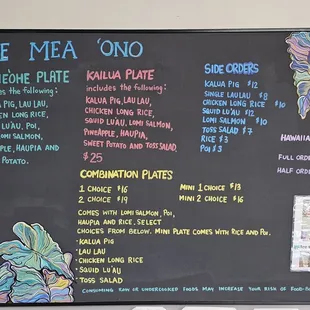 E MEA 'ONO
EʻOHE PLATE
ES THE FOLLOWING:
A PIG, LAU LAU,
EN LONG RICE,
LU'AU, POI,
LOMI SALMON,
PLE, HAUPIA AND
POTATO.
KAILUA PLATE
includes the following:
KALUA PIG, LAU LAU,
CHICKEN LONG RICE,
SQUID LU'AU, LOMI SALMON,
PINEAPPLE, HAUPIA,
SWEET POTATO AND TOSS SALAD.
$25
SIDE ORDERS
KALUA PIG $12
SINGLE LAULAU $8
CHICKEN LONG RICE $10
SQUID LU'AU $12
LOMI SALMON $10
TOSS SALAD $7
RICE $3
POI $3
HAWAIIA
FULL ORD
HALF ORDE
COMBINATION PLATES
1 CHOICE $16
2 CHOICE $19
MINI 1 CHOICE $13
MINI 2 CHOICE $16
COMES WITH LOMI SALMON, POI,
HAUPIA AND RICE. SELECT
CHOICES FROM BELOW. MINI PLATE COMES WITH RICE AND POI.
• KALUA PIG
• LAU LAU
• CHICKEN LONG RICE
• SQUID LU'AU
• TOSS SALAD
CONSUMING RAW OR UNDERCOOKED FOODS MAY INCREASE YOUR RISK OF FOOD-BO